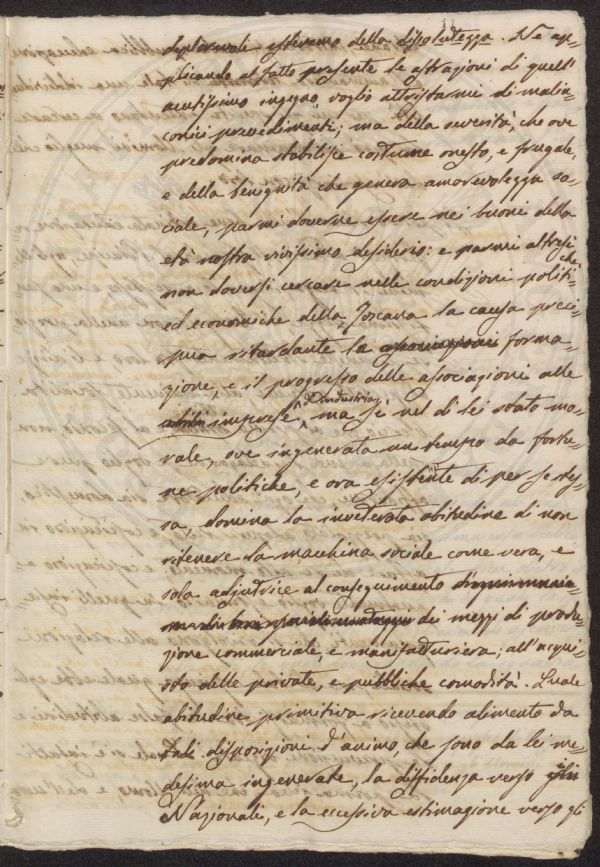 deplorevoli estremo della dissolutezza. Nè ap-
plicando al fatto presente le astrazioni di quell'
acutissimo ingegno, voglio attristarmi di malin-
conici prevedimenti; ma della severità, che ove
predomina stabilisce costume onesto, e frugale,
e della benignità che genera amorevolezza so-
ciale, parmi doverne essere nei buoni della
età nostra vivissimo desiderio: e parmi altresì che
non doversi cercare nelle condizioni politi-
ed economiche della Toscana la causa preci-
pua ritardante la forma-
zione, e il progresso delle associazioni alle
imprese d'industria, ma sì nel di lei stato mo-
rale, ove ingenerata un tempo da fortu-
ne politiche, e ora esistente di per se stes-
sa, domina la inveterata abitudine di non
ritenere la macchina sociale come vera, e
sola adjutrice al conseguimento
dei mezzi di produ-
zione commerciale, e manifatturiera; all'acqui-
sto delle private, e pubbliche comodità. Quale
abitudine primitiva ricevendo alimento da
tali disposizioni d'animo, che sono da lei me-
desima ingenerate, la diffidenza verso gli
Nazionali, e la eccessiva estimazione verso gli